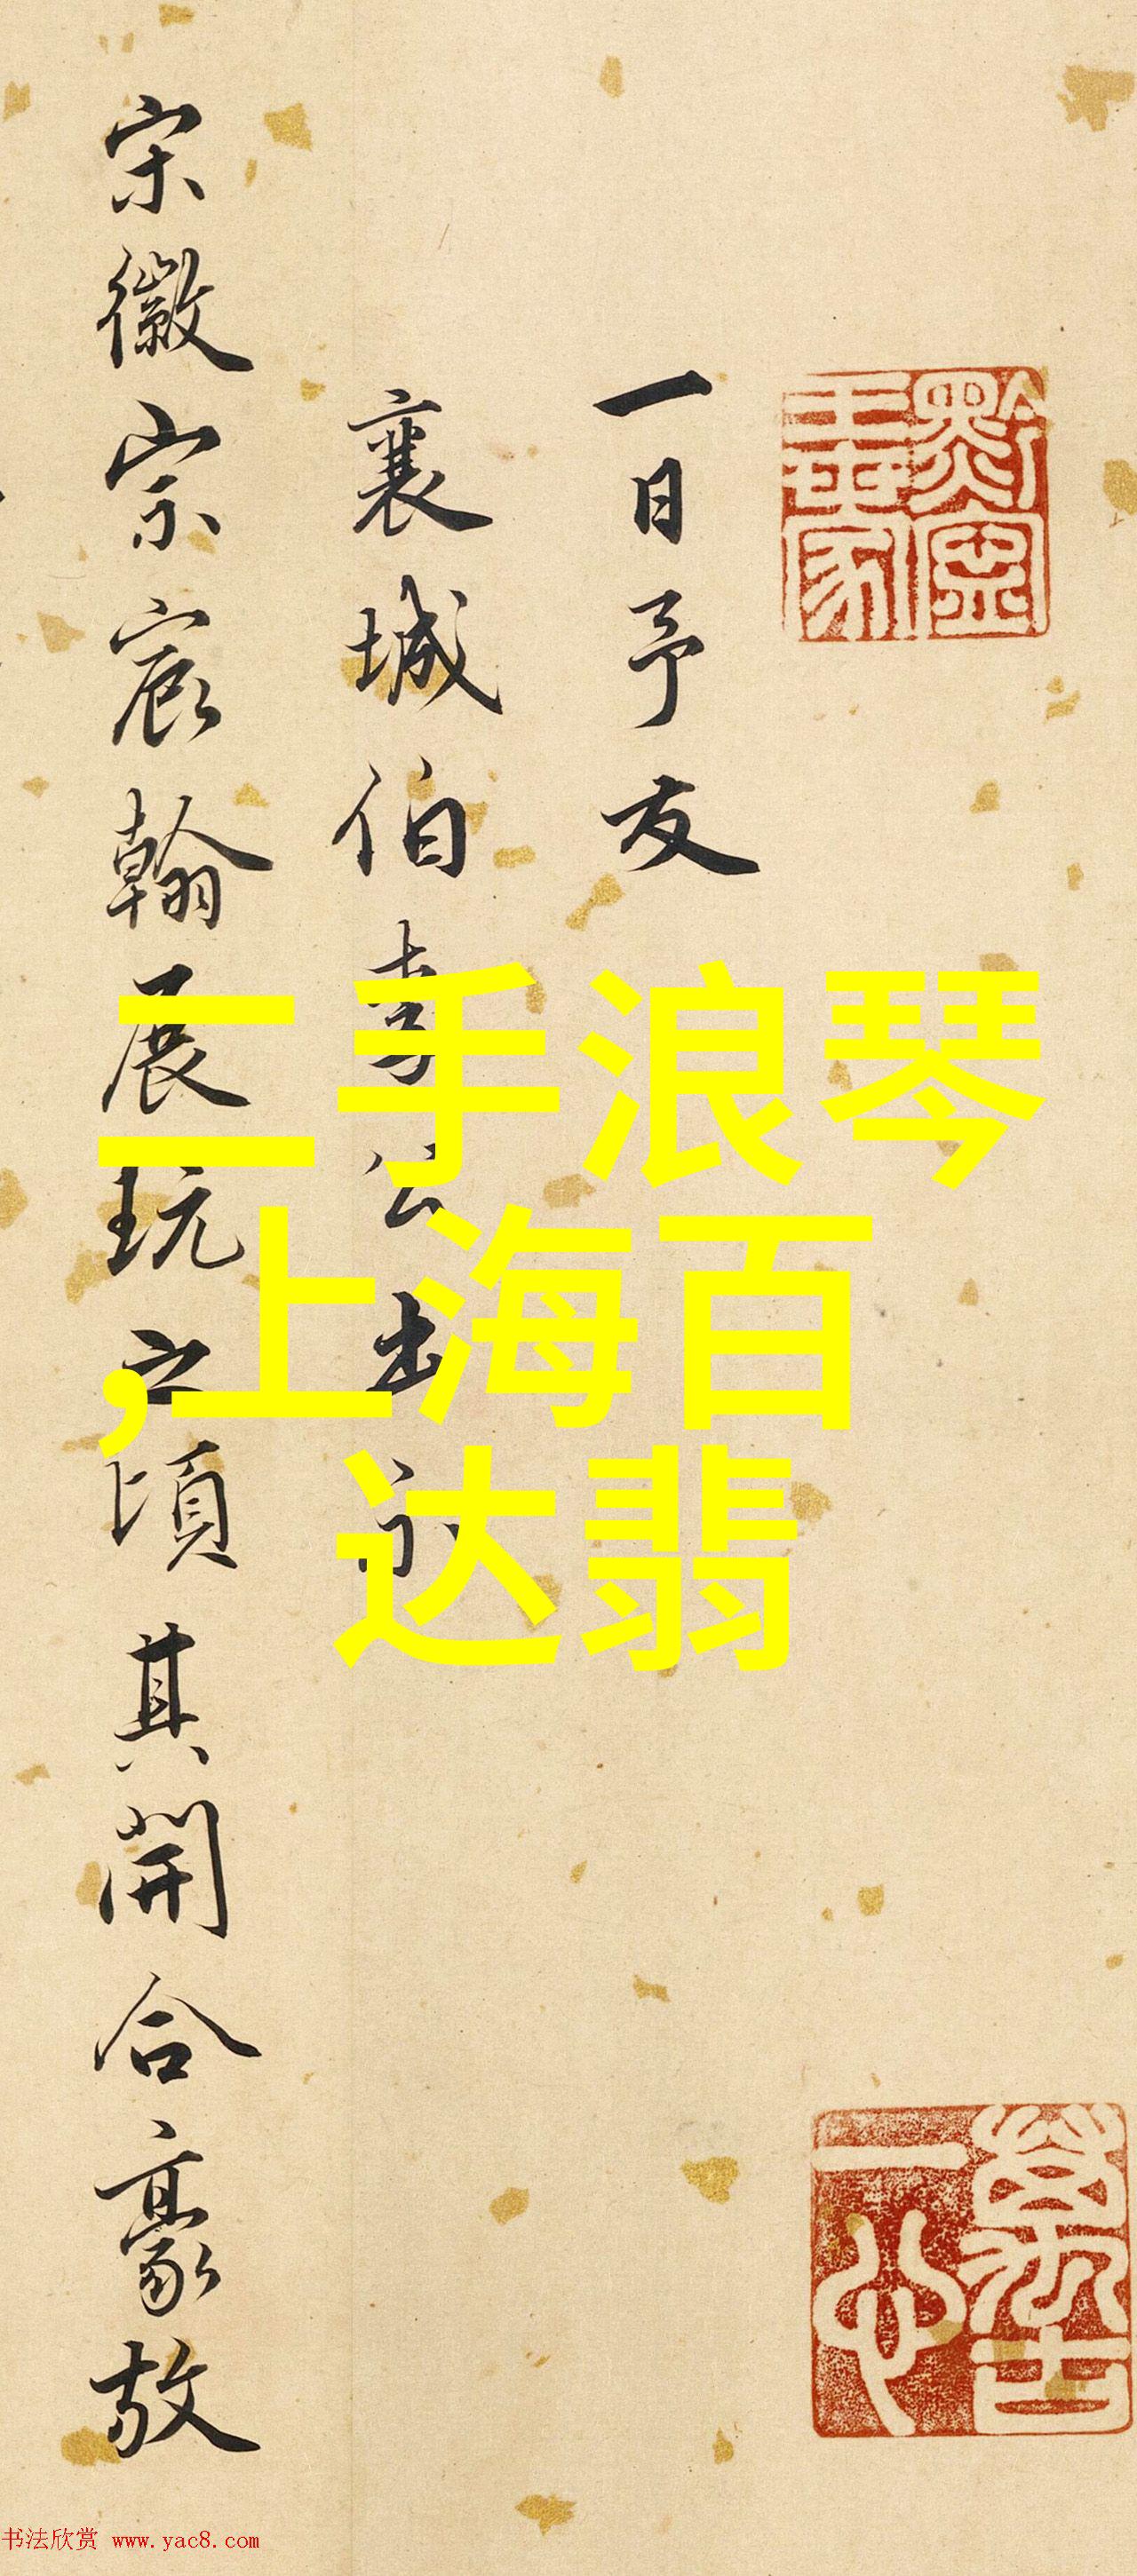 一日予友
襄城伯李公出示
宋徽宗宸翰展玩之頃其開合豪放
二手浪琴
,上海百
达翡
书法欣赏 www.yac8.com